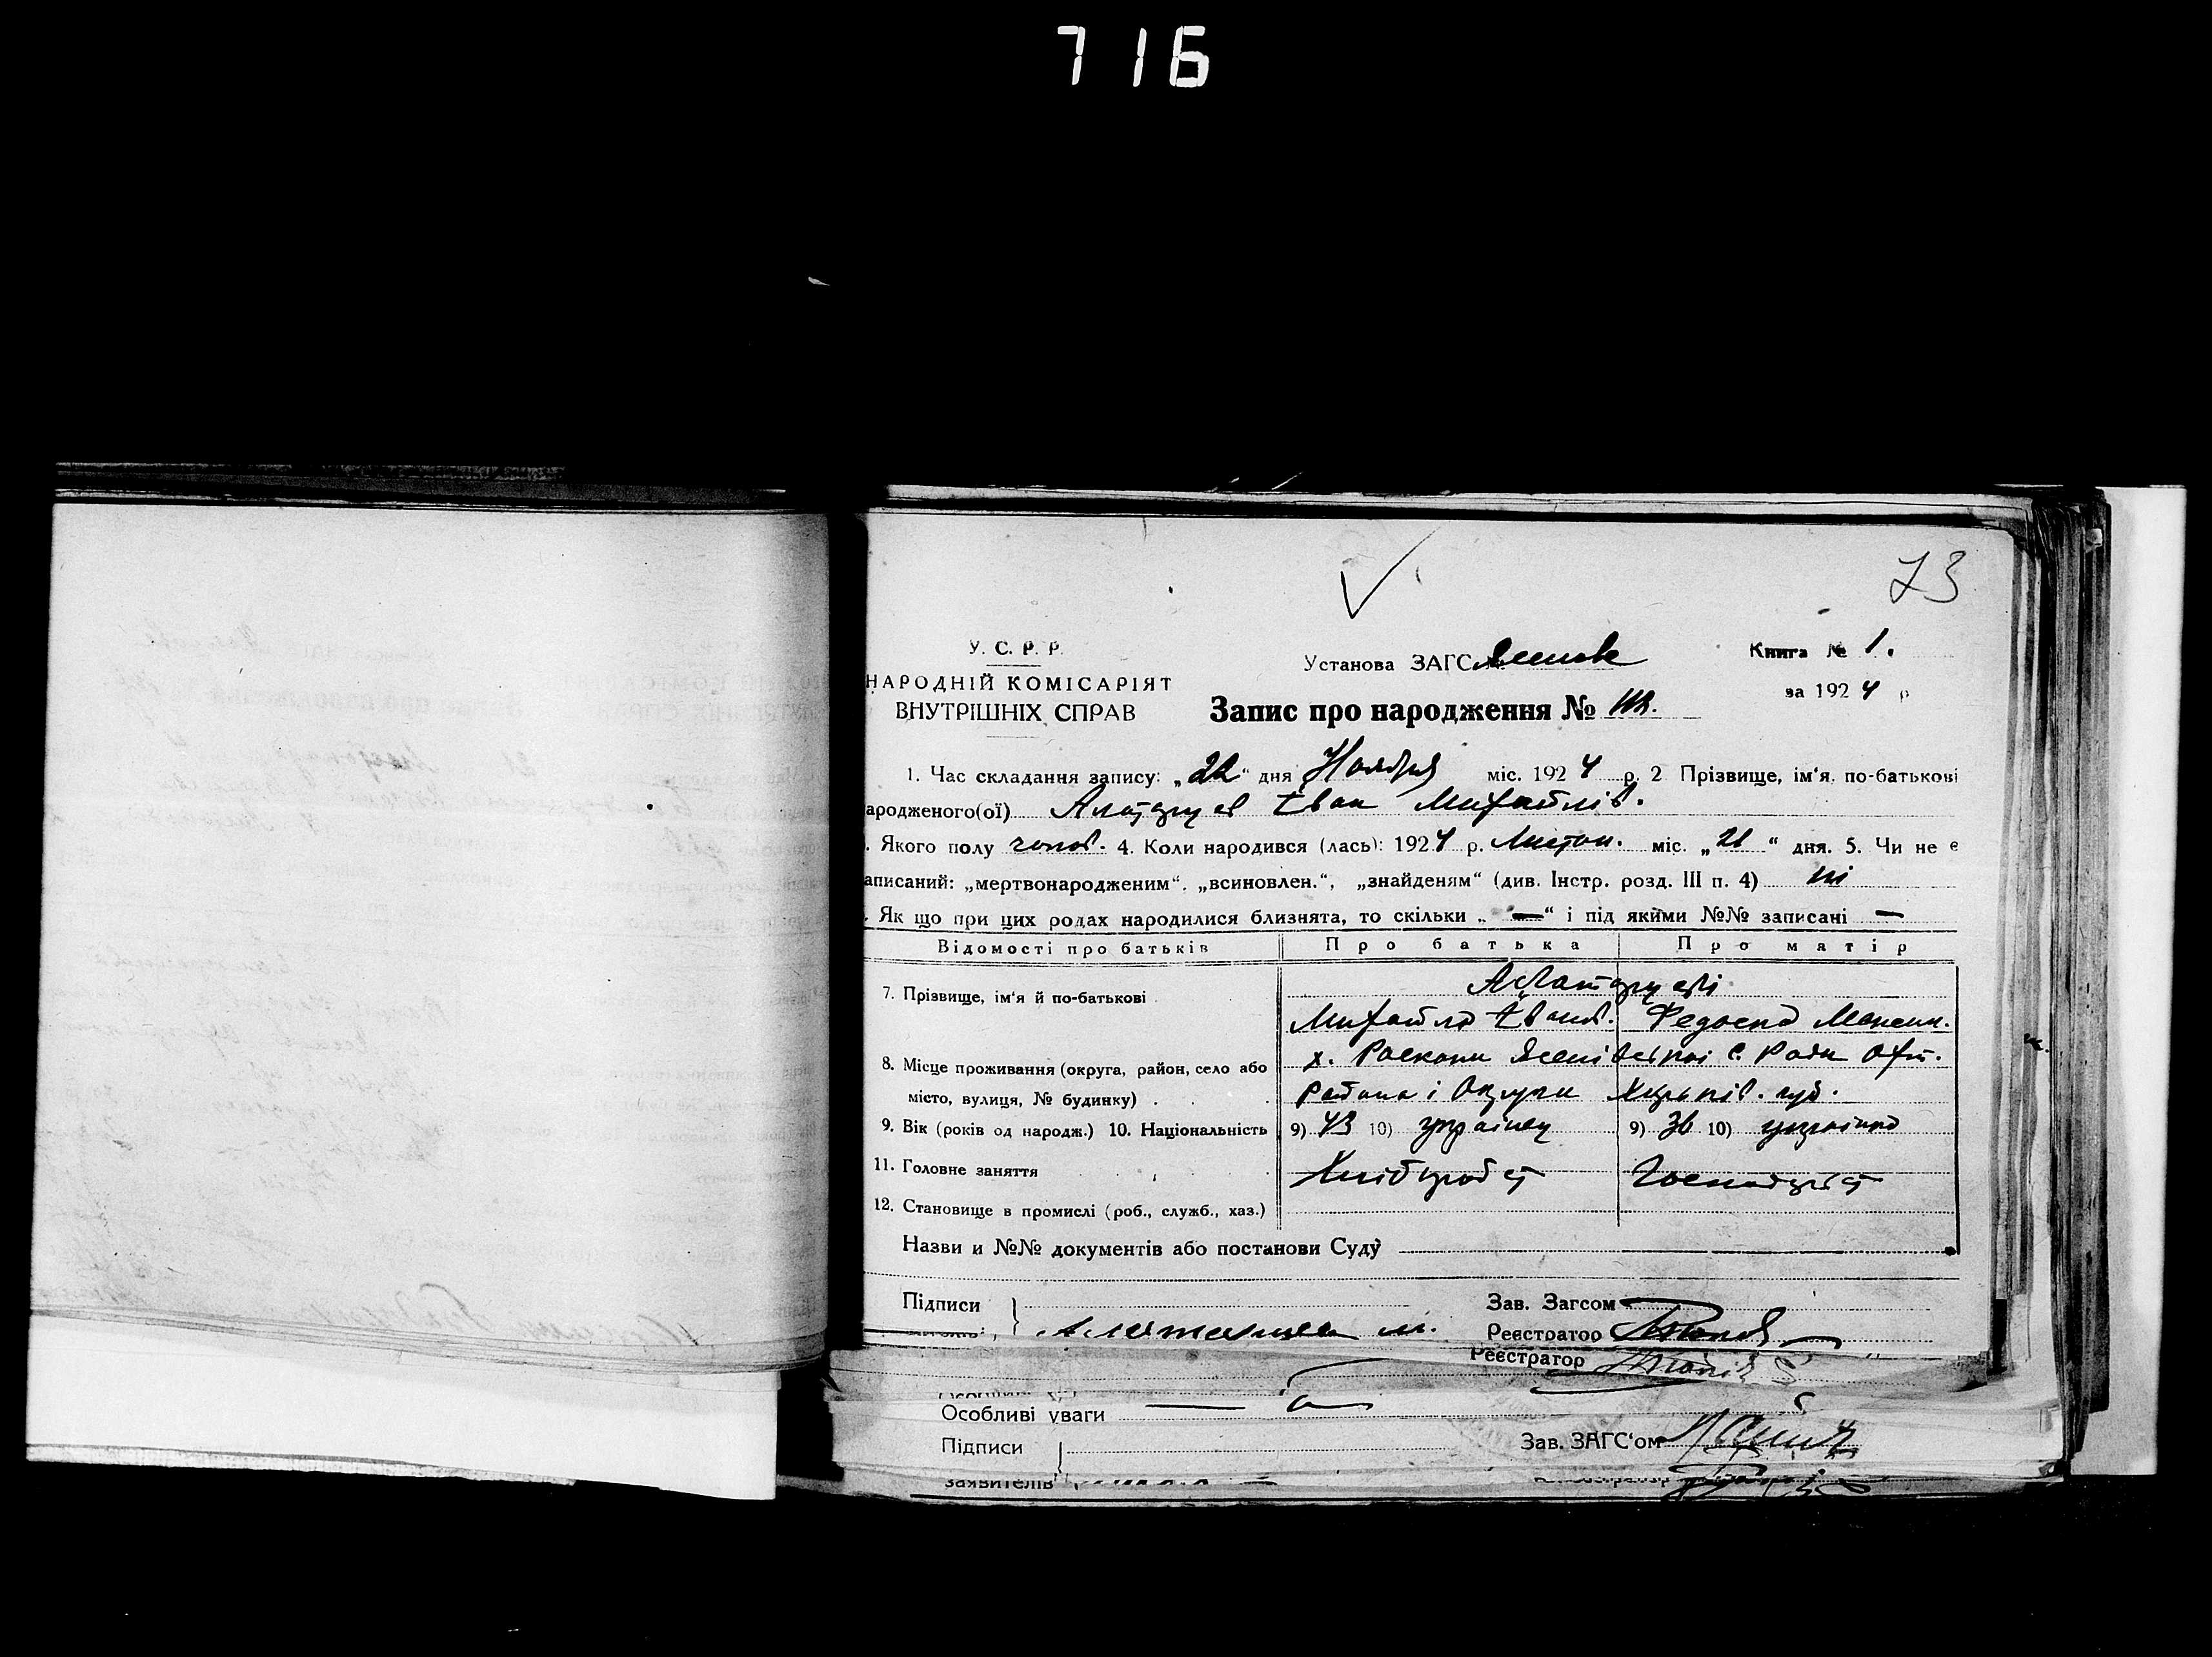 716
73
У. С. Р. Р.
НАРОДНІЙ КОМІСАРІЯТ
ВНУТРІШНІХ СПРАВ
Установа ЗАГС
Книга № 1.
за 1924 р
Запис про народження №
1. Час складання запису: „22“ дня Ноября міс. 1924 р. 2 Прізвище, ім‘я, по-батькові
ародженого(ої) Іван Михайлів.
. Якого полу чолов. 4. Коли народився (лась): 1924 р. Листоп. міс. „21“ дня. 5. Чи не є
аписаний: „мертвонародженим“, „всиновлен.“, „знайденям“ (див. Інстр. розд. III п. 4) ні
. Як що при цих родах народилися близнята, то скільки „ — “ і під якими №№ записані —
Відомості про батьків Про батька Про матір
7. Прізвище, ім‘я й по-батькові
Михайло Іванов. Федоска Максим.
8. Місце проживання (округа, район, село або х. Раскопи Ясенівської С. Ради Охт.
місто, вулиця, № будинку) . Района і Округи Харьків. губ.
9. Вік (років од народж.) 10. Національність 9) 43 10) українец 9) 36 10) українка
11. Головне заняття Хлібороб
12. Становище в промислі (роб., служб., хаз.)
Назви и №№ документів або постанови Суду
Підписи
Зав. Загсом
Реєстратор
Реєстратор
Особливі уваги
Підписи
Зав. ЗАГС‘ом
заявителів